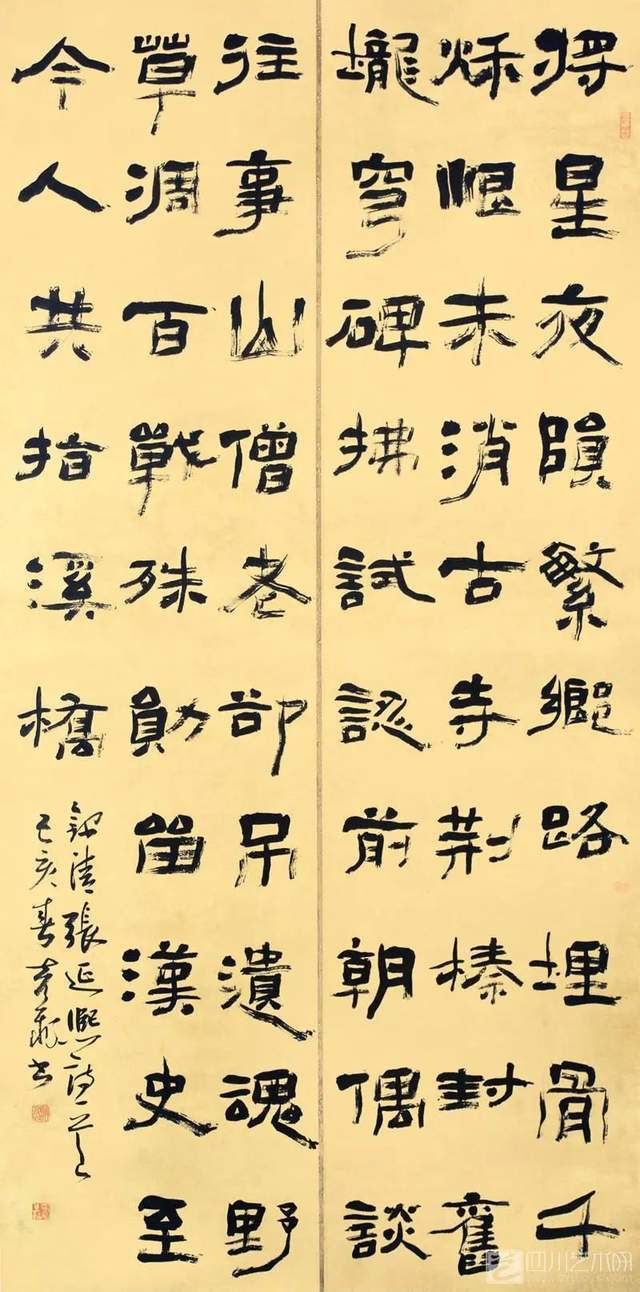 将星夜隕繁鄉路埋骨千
秌恨未消古寺荆榛封舊
壠穹碑拂試認前朝偶談
往事山僧老卻吊遺魂野
草凋百戰殊勛留漢史至
今人共指溪橋
錄清張延熙詩一首
己亥春書
四川艺术网